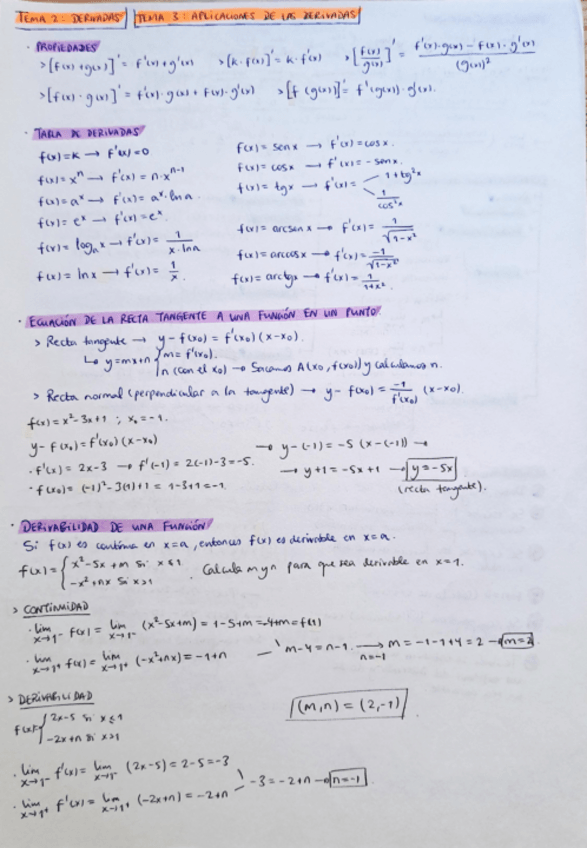 TEMA 2: DERIVADAS TEMA 3: APLICACIONES DE LAS DERIVADAS
· PROPIEDADES
> [f(x)+g(x)]' = f'(x)+g'(x) > [k·f(x)]' = k·f'(x) > [f(x)/g(x)]' = (f'(x)·g(x) - f(x)·g'(x))/(g(x))²
> [f(x)·g(x)]' = f'(x)·g(x) + f(x)·g'(x) > [f(g(x))]' = f'(g(x))·g'(x).
· TABLA DE DERIVADAS
f(x)=K → f'(x)=0
f(x)=xⁿ → f'(x)=n·xⁿ⁻¹
f(x)=aˣ → f'(x)=aˣ·ln a.
f(x)=eˣ → f'(x)=eˣ
f(x)=logₐx → f'(x)=1/(x·lna)
f(x)=lnx → f'(x)=1/x.
f(x)=senx → f'(x)=cosx.
f(x)=cosx → f'(x)=-senx.
f(x)=tgx → f'(x)= 1+tg²x
1/cos²x
f(x)=arcsenx → f'(x)=1/√(1-x²)
f(x)=arccosx → f'(x)=-1/√(1-x²)
f(x)=arctgx → f'(x)=1/(1+x²).
· ECUACIÓN DE LA RECTA TANGENTE A UNA FUNCIÓN EN UN PUNTO.
> Recta tangente → y-f(x₀)=f'(x₀)(x-x₀).
↳ y=mx+n { m=f'(x₀).
n (con el x₀) → Sacamos A(x₀,f(x₀)) y calculamos n.
> Recta normal (perpendicular a la tangente) → y-f(x₀)=-1/f'(x₀) (x-x₀).
f(x)=x²-3x+1 ; x₀=-1.
y-f(x₀)=f'(x₀)(x-x₀)
· f'(x)=2x-3 → f'(-1)=2(-1)-3=-5.
· f(x₀)=(-1)²-3(1)+1=1-3+1=-1.
→ y-(-1)=-5(x-(-1)) →
→ y+1=-5x+1 → y=-5x
(recta tangente).
· DERIVABILIDAD DE UNA FUNCIÓN
Si f(x) es continua en x=a, entonces f(x) es derivable en x=a.
f(x)= { x²-5x+m si x≤1
-x²+nx si x>1 . Calcula m y n para que sea derivable en x=1.
> CONTINUIDAD
· lim x→1⁻ f(x) = lim x→1⁻ (x²-5x+m) = 1-5+m=-4+m=f(1)
· lim x→1⁺ f(x) = lim x→1⁺ (-x²+nx) = -1+n
m-4=n-1. → n=-1 m=-1-1+4=2 → m=2.
> DERIVABILIDAD
f(x) { 2x-5 si x≤1
-2x+n si x>1
(m,n) = (2,-1)
· lim x→1⁻ f'(x) = lim x→1⁻ (2x-5) = 2-5=-3
· lim x→1⁺ f'(x) = lim x→1⁺ (-2x+n) = -2+n
-3=-2+n → n=-1.